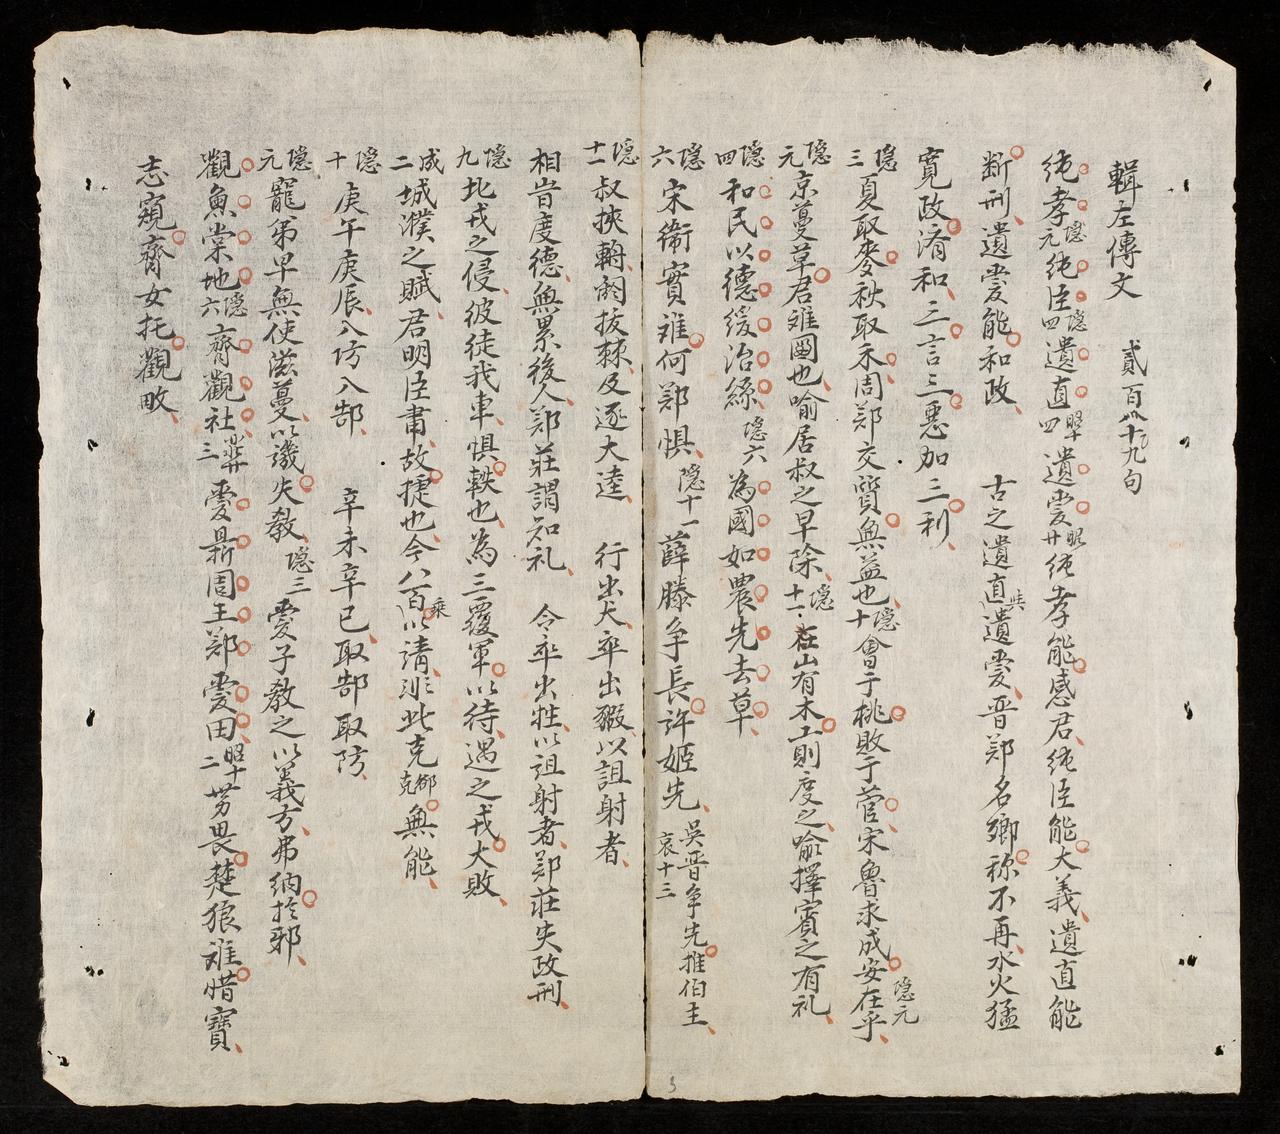 輯左傳文 貳百八十九句
純孝隱元純臣隱四遺直昭十四遺愛昭廿純孝能感君純臣能大義遺直能
断刑遺愛能和政 古之遺直遺愛晋郑名卿称不再水火猛
寬政濟和三言三惡加三利
隱三夏取麥秋取禾周郑交質無益也隱十會于桃敗于菅宋魯求成安在乎隱元
隱元京蔓草君难圖也喻居叔之早除隱十一在山有木工則度之喻擇賓之有礼
隱四和民以德緩治絲隱六為國如農先去草
隱六宋衞實难何郑惧隱十一薛滕争長許姬先吳晋争先推伯主哀十三
隱十一叔挾輈閼拔棘及逐大逵 行出犬卒出豭以詛射者
相旹度德無累後人郑莊謂知礼 令卒出牲以詛射者郑莊失政刑
隱九北戎之侵彼徒我車惧軼也為三覆軍以待遇之戎大敗
成二城濮之賦君明臣肅故捷也今八百乘以請非此克郤克無能
隱十庚午庚辰入防入郜 辛未辛巳取郜取防
隱元寵弟早無使滋蔓以譏失教隱三愛子教之以義方弗納於邪
觀魚棠地隱六齊觀社莊三愛鼎周王郑愛田昭十二労畏楚狼难惜寶
志窺齊女托觀畋